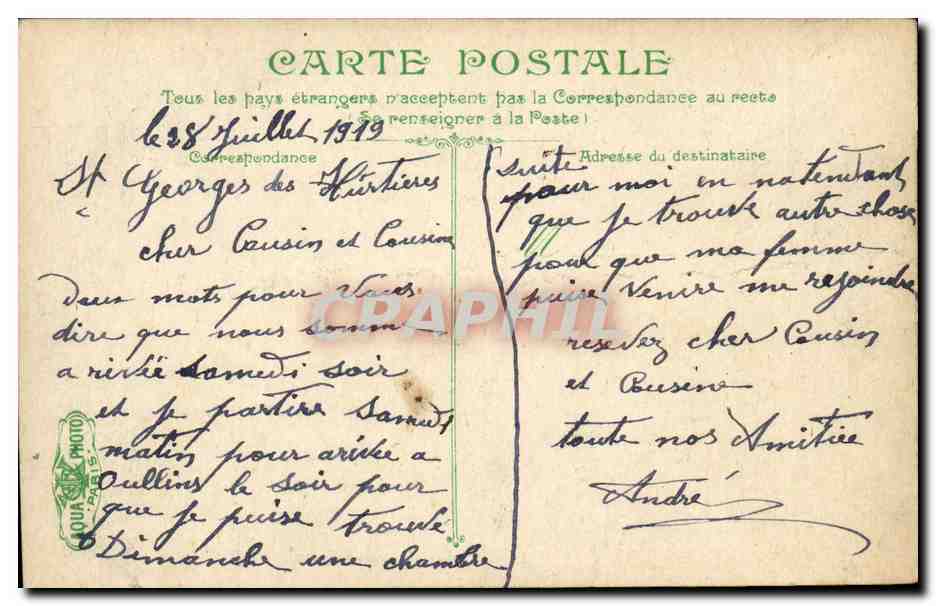 CARTE POSTALE
Tous les pays étrangers n'acceptent pas la Correspondance au recto
(Se renseigner à la Poste)
le 28 Juillet 1919
Correspondance
St Georges des Hurtieres
cher Cousin et Cousine
Deux mots pour Vous
dire que nous somme
a rivée samedi soir
et je partire samedi
matin pour arivée a
Oullins le soir pour
que je puise trouvé
Dimanche une chambre
AQUA PHOTO
PARIS
Adresse du destinataire
suite
pour moi en natendant
que je trouve autre chose
pour que ma femme
puise Venire me rejoindre
resevez cher Cousin
et Cousine
toute nos Amitiée
André
CRAPHIL